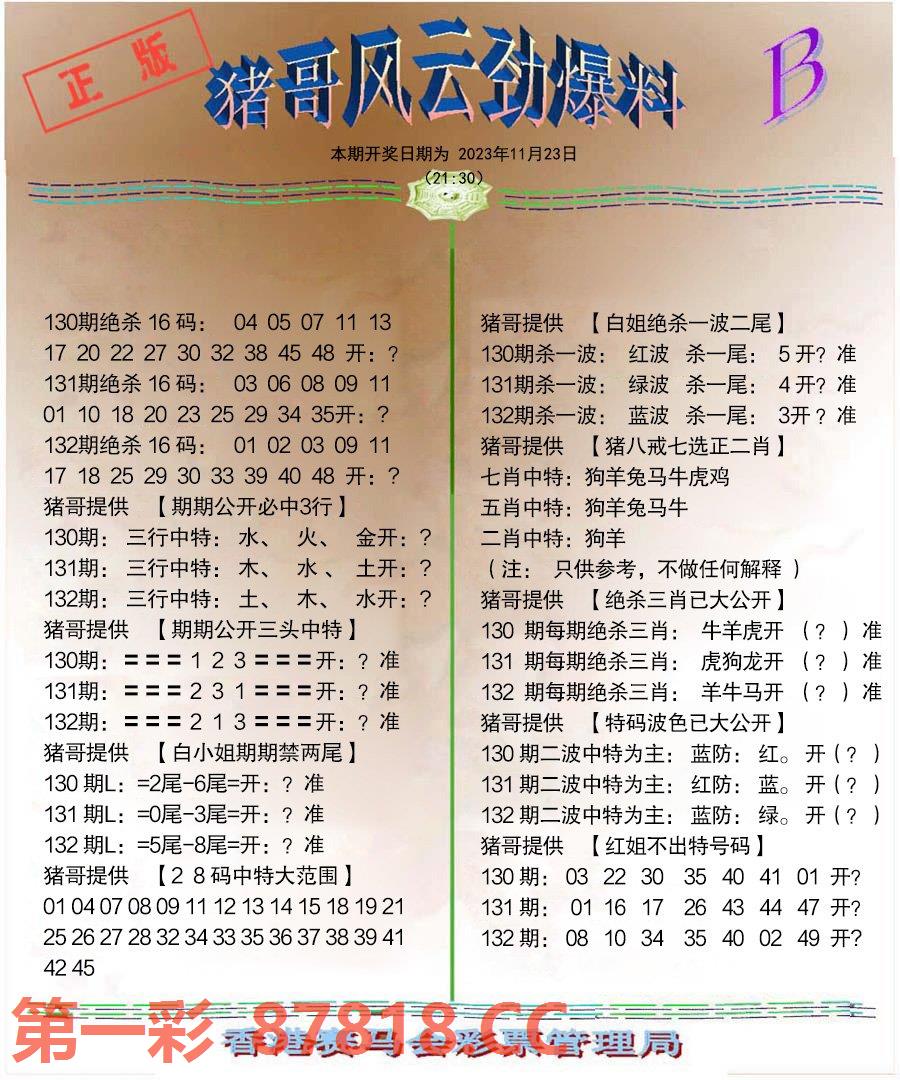 正版
猪哥风云劲爆料
B
本期开奖日期为 2023年11月23日
(21:30)
130期绝杀 16 码： 04 05 07 11 13
17 20 22 27 30 32 38 45 48 开：?
131期绝杀 16 码： 03 06 08 09 11
01 10 18 20 23 25 29 34 35开：?
132期绝杀 16 码： 01 02 03 09 11
17 18 25 29 30 33 39 40 48 开：?
猪哥提供 【期期公开必中3行】
130期： 三行中特：水、 火、 金开：?
131期： 三行中特：木、 水 、 土开：?
132期： 三行中特：土、 木、 水开：?
猪哥提供 【期期公开三头中特】
130期：＝＝＝ 1 2 3 ＝＝＝开：? 准
131期：＝＝＝ 2 3 1 ＝＝＝开：? 准
132期：＝＝＝ 2 1 3 ＝＝＝开：? 准
猪哥提供 【白小姐期期禁两尾】
130 期L：=2尾-6尾=开：? 准
131 期L：=0尾-3尾=开：? 准
132 期L：=5尾-8尾=开：? 准
猪哥提供 【２８码中特大范围】
01 04 07 08 09 11 12 13 14 15 18 19 21
25 26 27 28 32 34 33 35 36 37 38 39 41
42 45
猪哥提供 【白姐绝杀一波二尾】
130期杀一波： 红波 杀一尾： 5 开? 准
131期杀一波： 绿波 杀一尾： 4 开? 准
132期杀一波： 蓝波 杀一尾： 3开 ? 准
猪哥提供 【猪八戒七选正二肖】
七肖中特：狗羊兔马牛虎鸡
五肖中特：狗羊兔马牛
二肖中特：狗羊
（注： 只供参考，不做任何解释 ）
猪哥提供 【绝杀三肖已大公开】
130 期每期绝杀三肖： 牛羊虎开 （ ? ）准
131 期每期绝杀三肖： 虎狗龙开 （ ? ）准
132 期每期绝杀三肖： 羊牛马开 （ ? ）准
猪哥提供 【特码波色已大公开】
130 期二波中特为主： 蓝防： 红。 开（ ? ）
131 期二波中特为主： 红防： 蓝。 开（ ? ）
132 期二波中特为主： 蓝防： 绿。 开（ ? ）
猪哥提供 【红姐不出特号码】
130 期： 03 22 30 35 40 41 01 开?
131 期： 01 16 17 26 43 44 47 开?
132 期： 08 10 34 35 40 02 49 开?
第一彩 87818.CC
香港赛马会彩票管理局